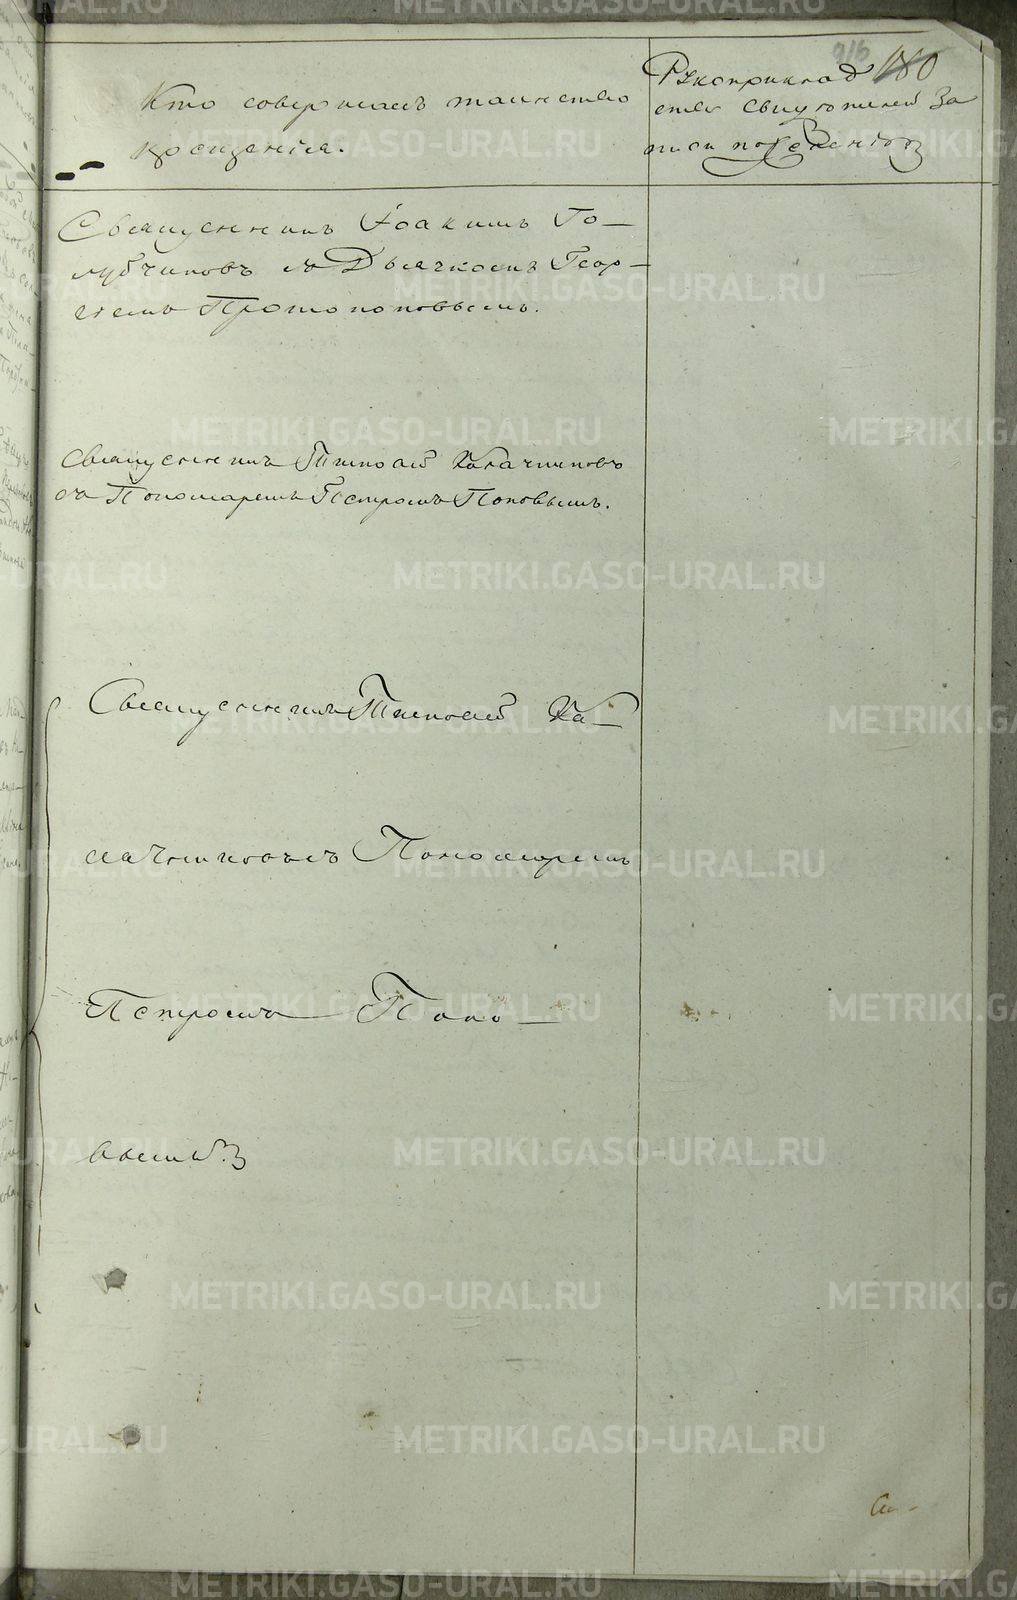 216 180
Кто совершалъ таинство
крещенія.
Рукоприклад
ство свидѣтелей за
писи по желанію
Священникъ Іоакимъ Го-
лубчиковъ съ Дьячкомъ Геор-
гіемъ Протопоповымъ.
Священникъ Тимофей Калачниковъ
съ Пономаремъ Петромъ Поповымъ.
Священникъ Тимофей Ка-
лачниковъ съ Пономаремъ
Петромъ Попо-
вымъ.
METRIKI.GASO-URAL.RU